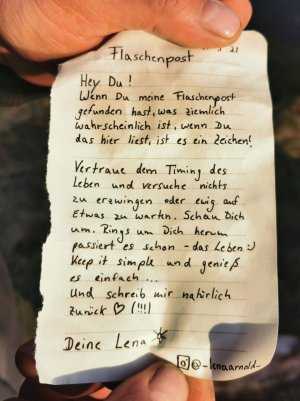 21
Flaschenpost
Hey Du!
Wenn Du meine Flaschenpost
gefunden hast, was ziemlich
wahrscheinlich ist, wenn Du
das hier liest, ist es ein Zeichen!
Vertraue dem Timing des
Leben und versuche nichts
zu erzwingen oder ewig auf
Etwas zu warten. Schau Dich
um. Rings um Dich herum
passiert es schon - das Leben :)
Keep it simple und genieß
es einfach...
Und schreib mir natürlich
zurück ♡ (!!!)
Deine Lena
@_lenaarnold_